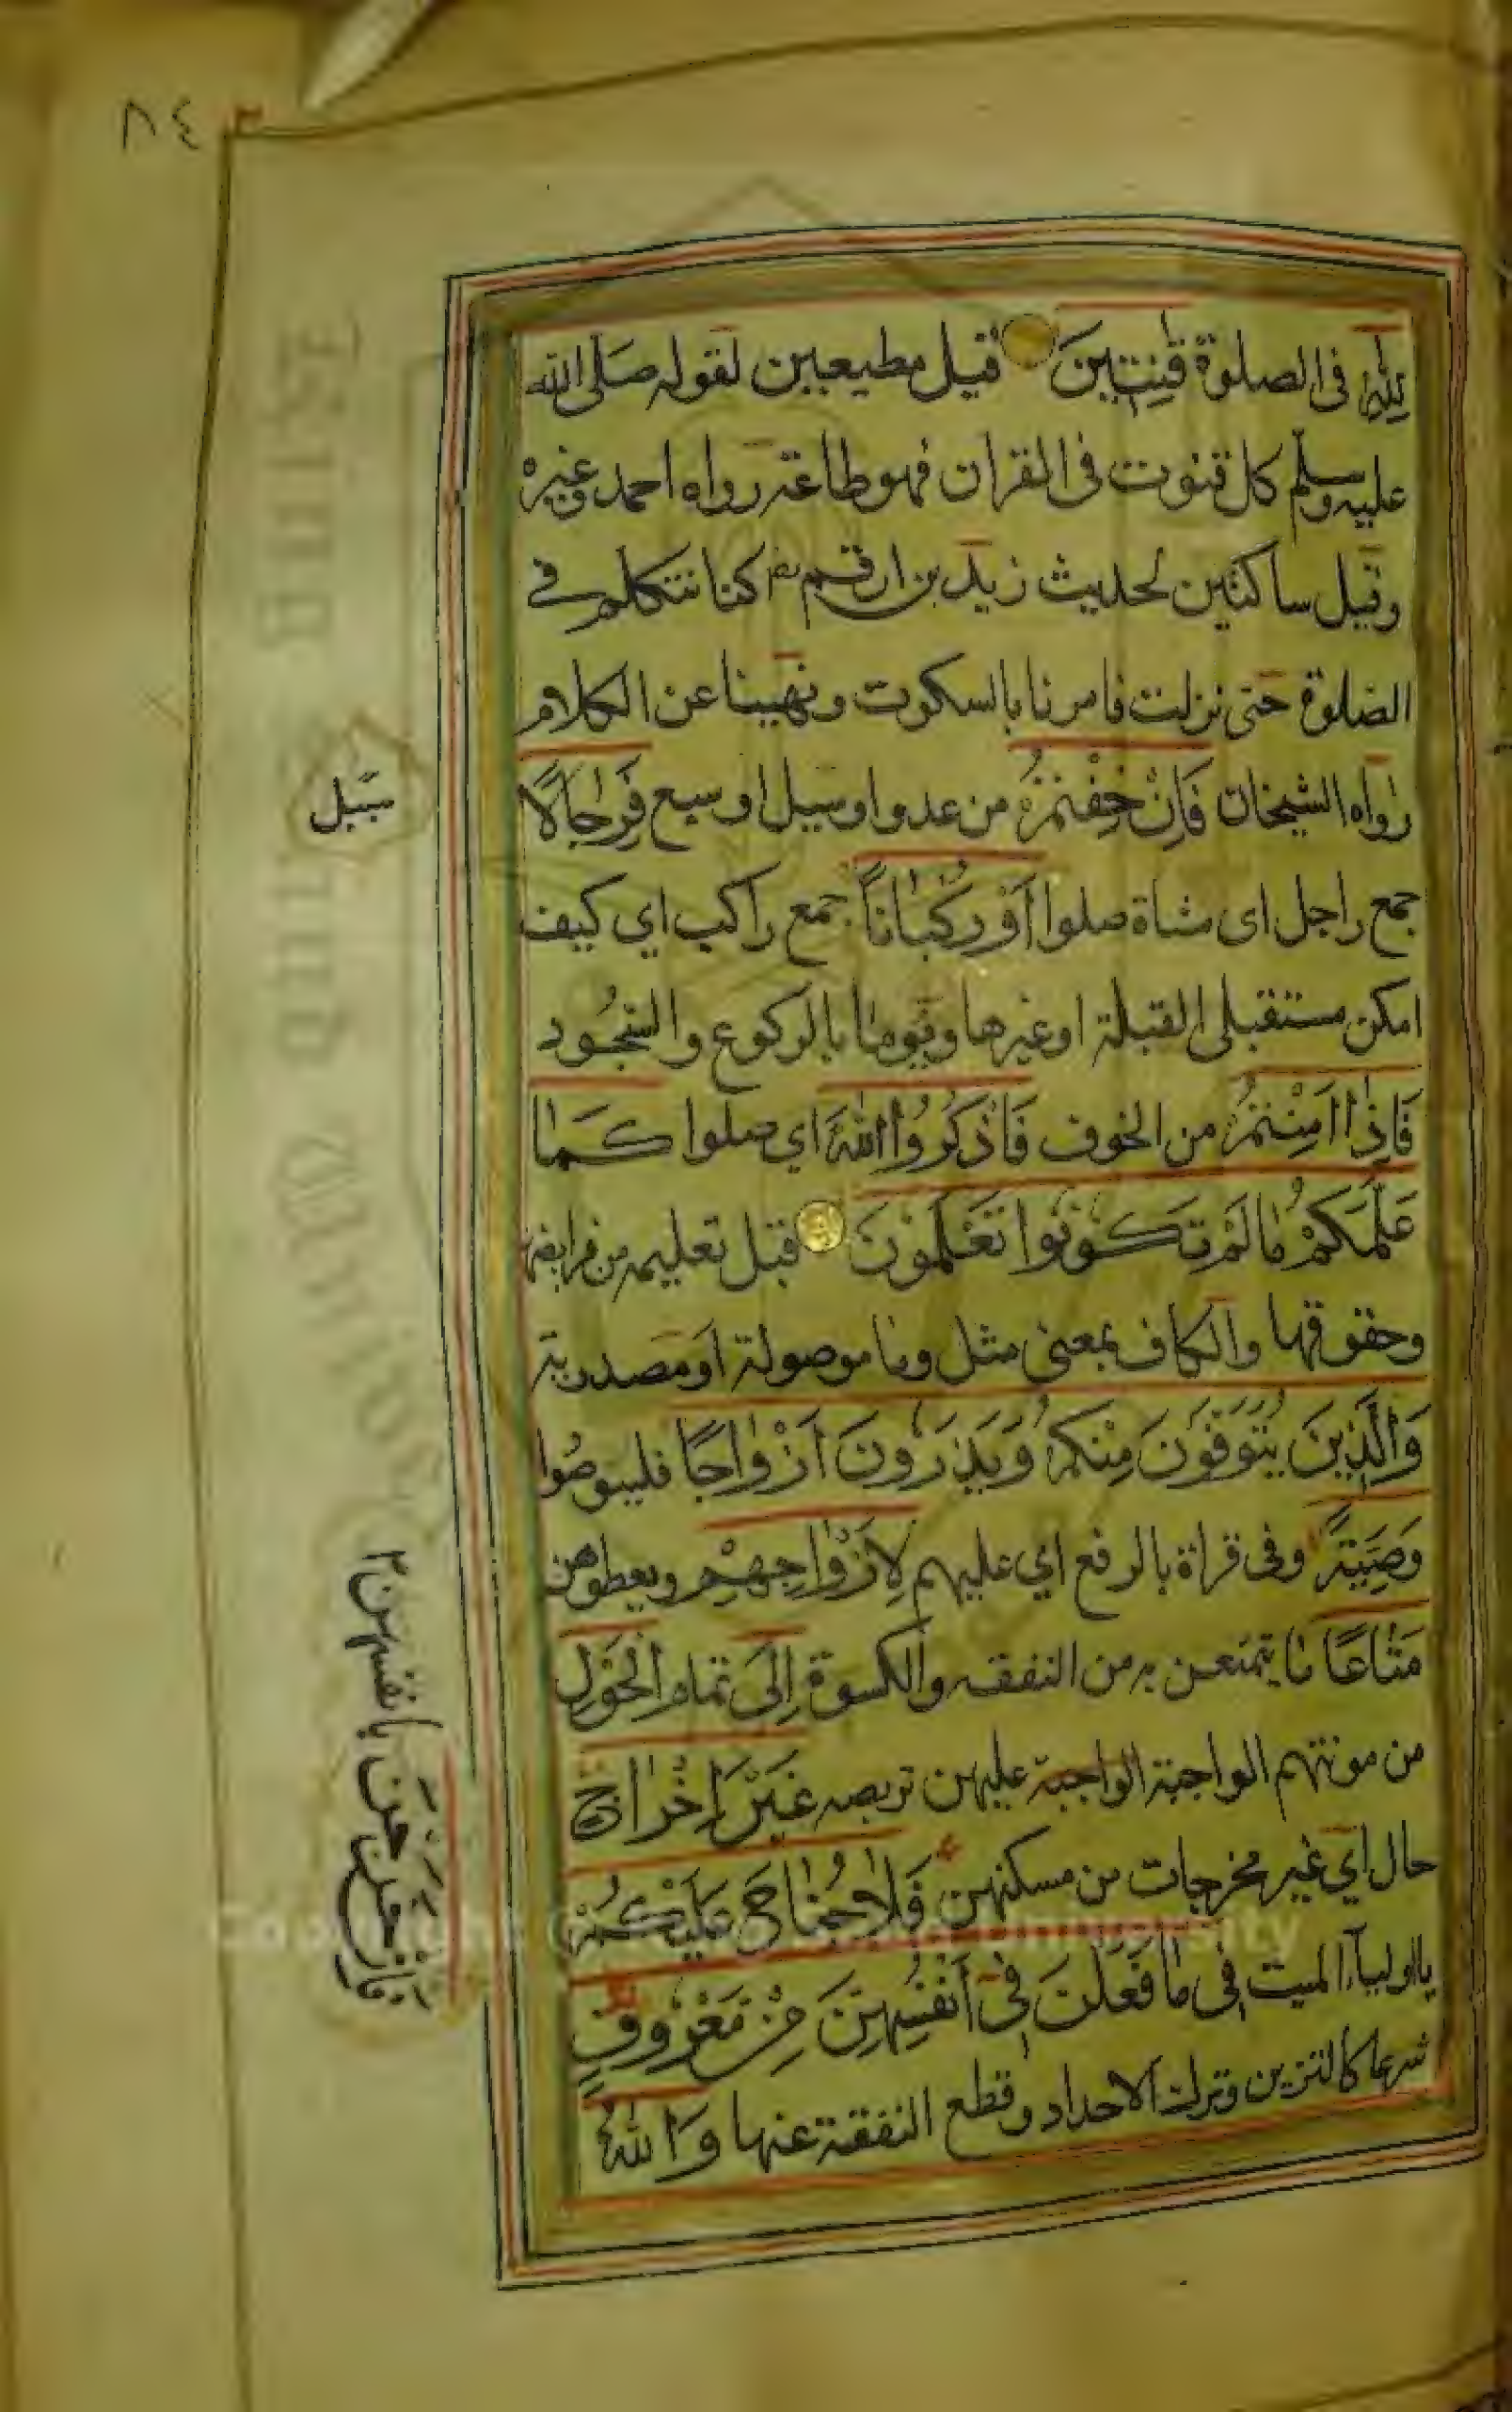 ٨٤
لِلّٰهِ فی الصلوة قٰنِتِینَ قیل مطیعین لقوله صلی الله
علیه وسلم كل قنوت فی القران فهو طاعة رواه احمد وغیره
وقیل ساكتین لحدیث زید بن ارقم كنا نتكلم فے
الصلوة حتی نزلت فامرنا بالسكوت ونهینا عن الكلام
رواه الشیخان فَاِنْ خِفْتُمْ من عدو او سیل او سبع فَرِجَالًا
جمع راجل ای مشاة صلوا اَوْ رُكْبَانًا جمع راكب ای كیف
امكن مستقبلی القبلة او غیرها ویوما بالركوع والسُّجُود
فَاِذَا اَمِنْتُمْ من الخوف فَاذْكُرُوا اللّٰهَ ای صلوا كَمَا
عَلَّمَكُمْ مَا لَمْ تَكُوْنُوا تَعْلَمُوْنَ قبل تعلیمه من فرایضها
وحقوقها والكاف بمعنی مثل وما موصولة او مصدریة
وَالَّذِینَ یُتَوَفَّوْنَ مِنْكُمْ وَیَذَرُونَ اَزْوَاجًا فلیوصُوا
وَصِیَّةً وفی قراة بالرفع ای علیهم لِاَزْوَاجِهِمْ ویعطوهن
مَتَاعًا ما یتمتعن به من النفقة والكسوة اِلَی تمام الْحَوْلِ
من موتهم الواجبة الواجبة علیهن تربصه غَیْرَ اِخْرَاجٍ
حال ای غیر مخرجات من مسكنهن فَلَا جُنَاحَ عَلَیْكُمْ
یا اولیآء المیت فِی مَا فَعَلْنَ فِیْ اَنْفُسِهِنَّ مِنْ مَعْرُوفٍ
شرعا كالتزین وترك الاحداد وقطع النفقة عنها وَاللّٰهُ
سَیل
فَاِنْ خَرَجْنَ بانفسهن